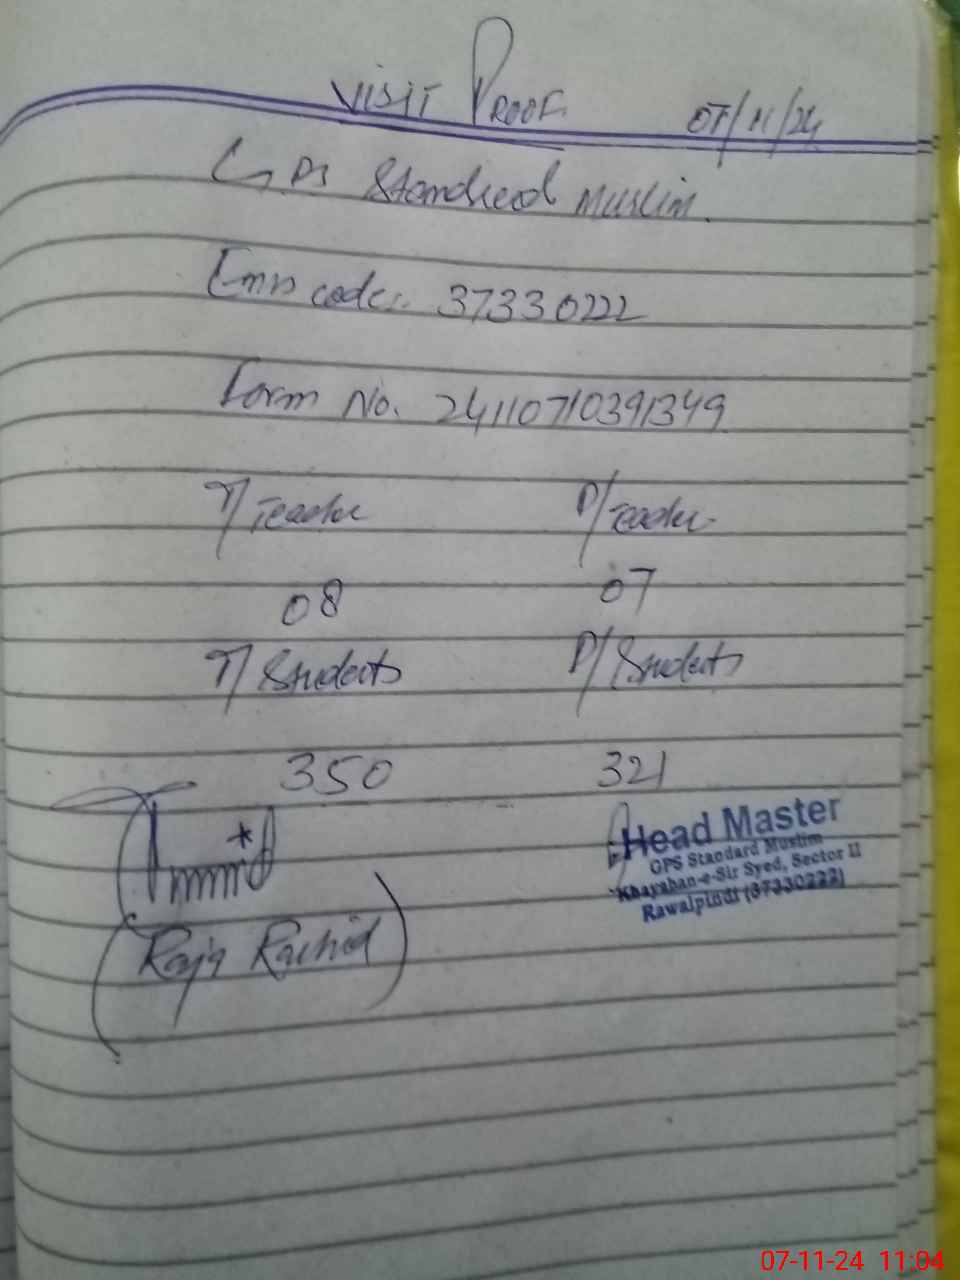 VISIT PROOF 07/11/24
GPS Standard Muslim.
Emis code:. 37330222
Form No. 2411071039 1349
T/Teacher P/Teacher
08 07
T/Students P/Students
350 321
Head Master
GPS Standard Muslim
Khayaban-e-Sir Syed, Sector II
Rawalpindi (37330222)
(Raja Rashid)
07-11-24 11:04